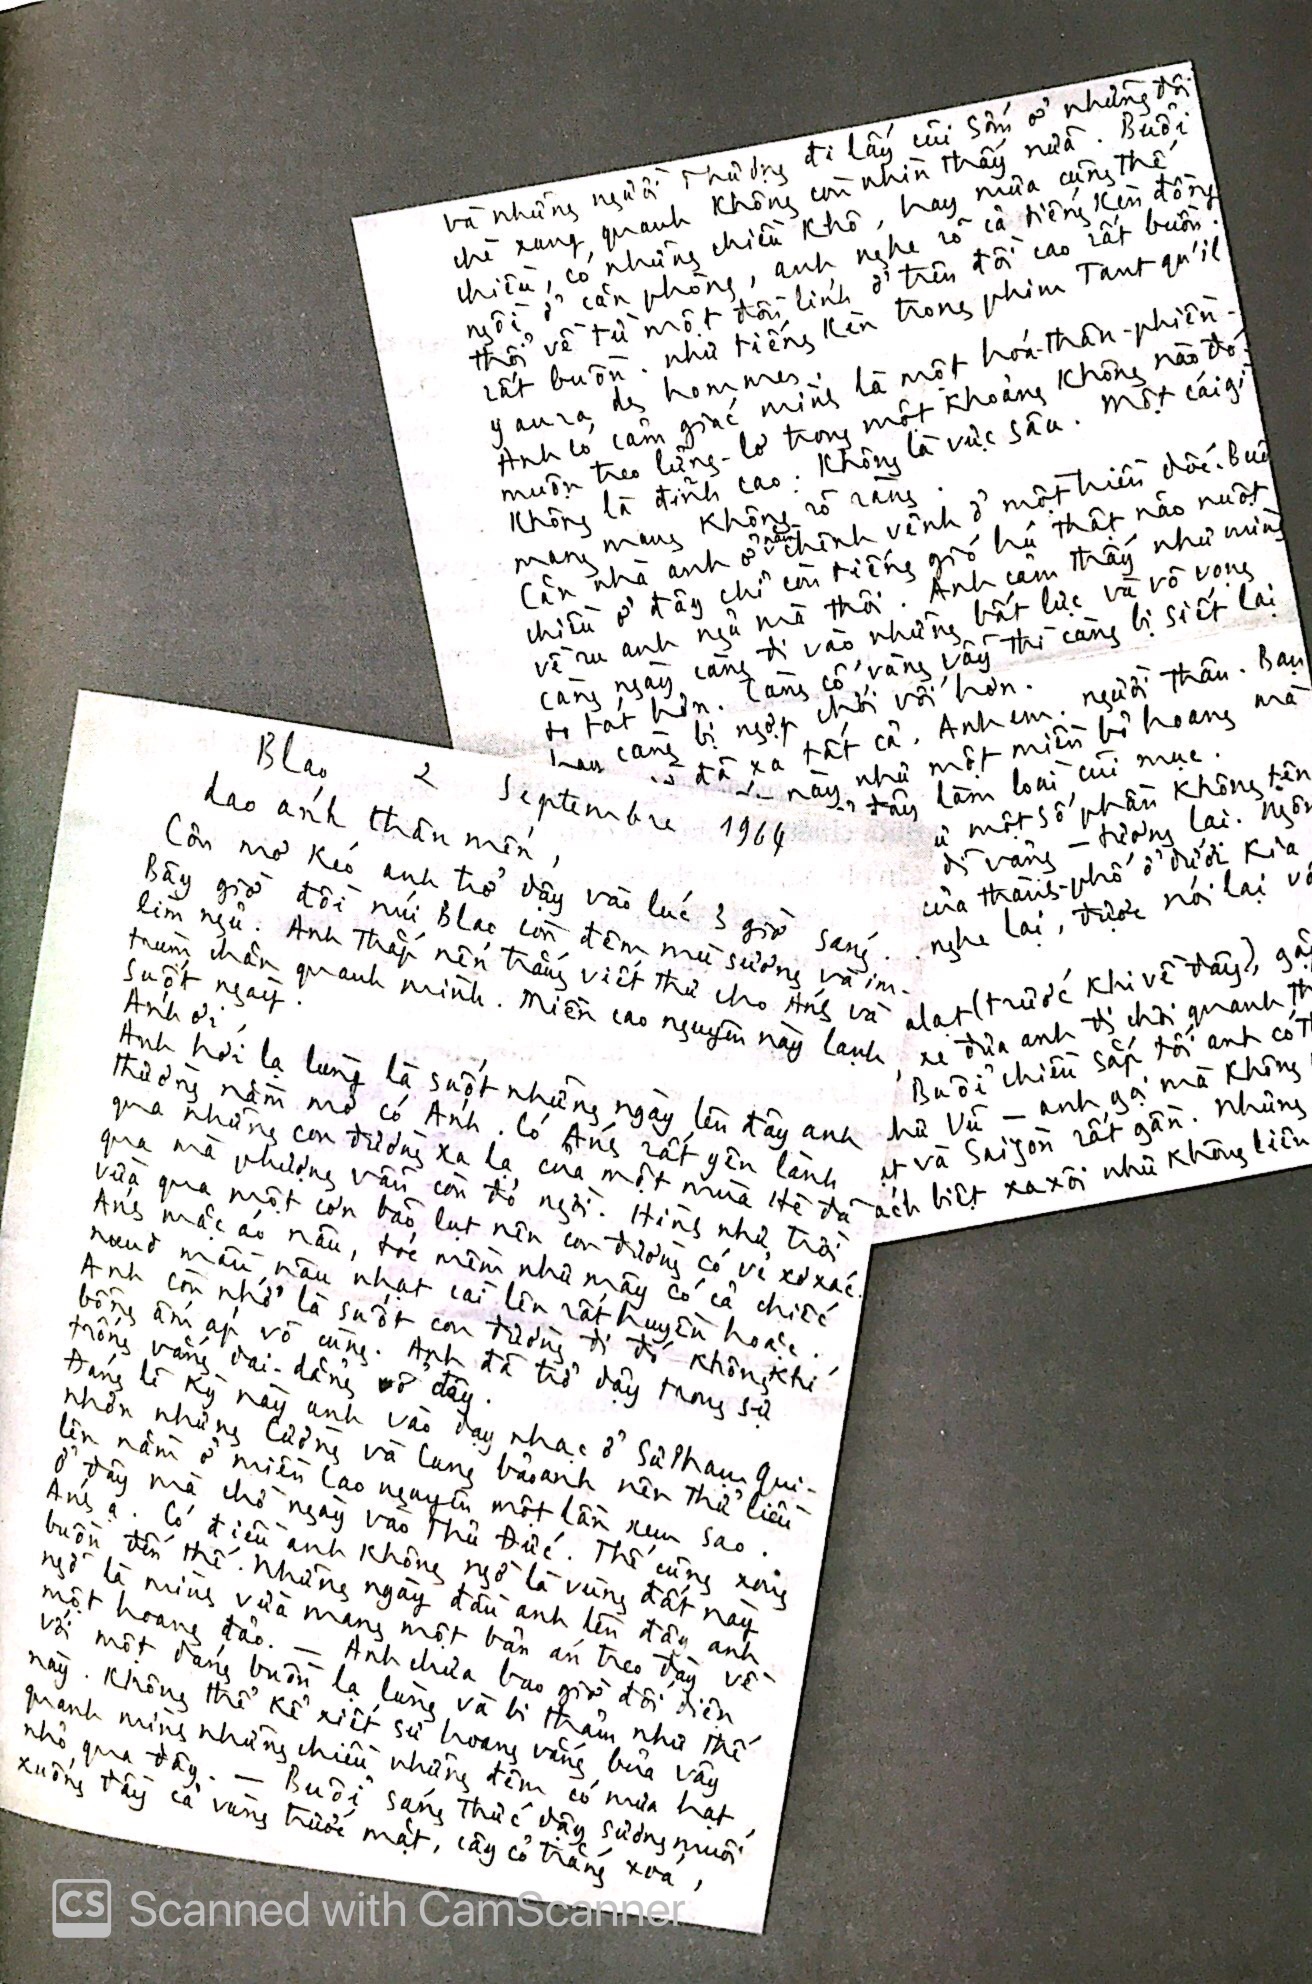 Blao 2 Septembre 1964
dao ánh thân mến,
Cơn mơ kéo anh trở dậy vào lúc 3 giờ sáng.
Bây giờ đồi núi Blao còn đêm mù sương và im-
lìm ngủ. Anh thắp nến trắng viết thư cho Ánh và
trùm chăn quanh mình. Miền cao nguyên này lạnh
suốt ngày.
Ánh ơi,
Anh hơi lạ lùng là suốt những ngày lên đây anh
thường nằm mơ có Ánh. Có Ánh rất yên lành
qua những con đường xa lạ của một mùa Hè đã
qua mà phượng vẫn còn đỏ ngời. Hình như trời
vừa qua một cơn bão lụt nên con đường có vẻ xơ xác.
Ánh mặc áo nâu, tóc mềm như mây có cả chiếc
nơud màu nâu nhạt cài lên rất huyễn hoặc.
Anh còn nhớ là suốt con đường đi đó không khí
bỗng ấm áp vô cùng. Anh đã trở dậy trong sự
trống vắng dai-dẳng ở đây.
Đáng lẽ kỳ này anh vào dạy nhạc ở Sư Phạm Qui-
nhơn nhưng Cường và Cung bảo anh nên thử liều
lên nằm ở miền Cao nguyên một lần xem sao.
Ở đây mà chờ ngày vào Thủ Đức. Thế cũng xong
Ánh ạ. Có điều anh không ngờ là vùng đất này
buồn đến thế. Những ngày đầu anh lên đây anh
ngỡ là mình vừa mang một bản án treo đày về
một hoang đảo. — Anh chưa bao giờ đối diện
với một dáng buồn lạ lùng và bi thảm như thế
này. Không thể kể xiết sự hoang vắng bủa vây
quanh mình những chiều những đêm có mưa hạt
nhỏ qua đây. — Buổi sáng thức dậy sương muối
xuống đầy cả vùng trước mặt, cây cỏ trắng xoá,
và những người Thượng đi lấy củi sớm ở những đồi
chè xung quanh không còn nhìn thấy nữa. Buổi
chiều, có những chiều khô, hay mưa cũng thế
ngồi ở căn phòng, anh nghe rõ cả tiếng kèn đồng
thổi về từ một đồn lính ở trên đồi cao rất buồn.
rất buồn. như tiếng kèn trong phim Tant qu'il
y aura des hommes.
Anh có cảm giác mình là một hoá-thân-phiền-
muộn treo lửng-lơ trong một khoảng không nào đó.
Không là đỉnh cao. Không là vực sâu. Một cái gì
mang mang không rõ ràng.
Căn nhà anh ở nằm chênh vênh ở một triền dốc. Buổi
chiều ở đây chỉ còn tiếng gió hú thật não nuột
về ru anh ngủ mà thôi. Anh cảm thấy như mình
càng ngày càng đi vào những bất lực và vô vọng
to tát hơn. Càng cố vùng vẫy thì càng bị siết lại
hay càng bị ngợp chới với hơn.
đã xa tất cả. Anh em. người thân. Bạn
này như một miền bỏ hoang mà
đây làm loài củi mục.
một số phần không tên
dĩ vãng — tương lai. Ngôn
của thành-phố ở dưới kia
nghe lại, được nói lại
alat (trước khi về đây), gặp
xe đưa anh đi chơi quanh
Buổi chiều sắp tối anh có
hư Vũ — anh gọi mà không
ạt và Saigon rất gần. nhưng
ách biệt xa xôi như không liên
Scanned with CamScanner